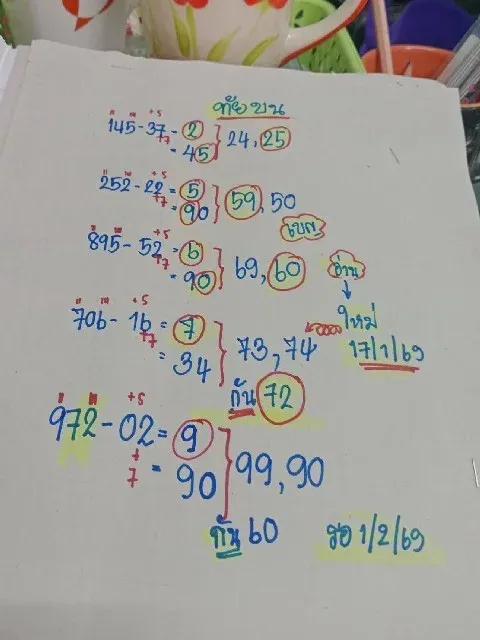 ทัย บน
145-37 = 2
+5
+7
= 45
24, 25
252-22 = 5
+5
+7
= 90
59, 50
895-52 = 6
+5
+7
= 90
69, 60
706-16 = 7
+5
+7
= 34
73, 74
ใหม่
17/1/69
กัน 72
972-02 = 9
+5
+
7
= 90
99, 90
กัน 60
รอ 1/2/69